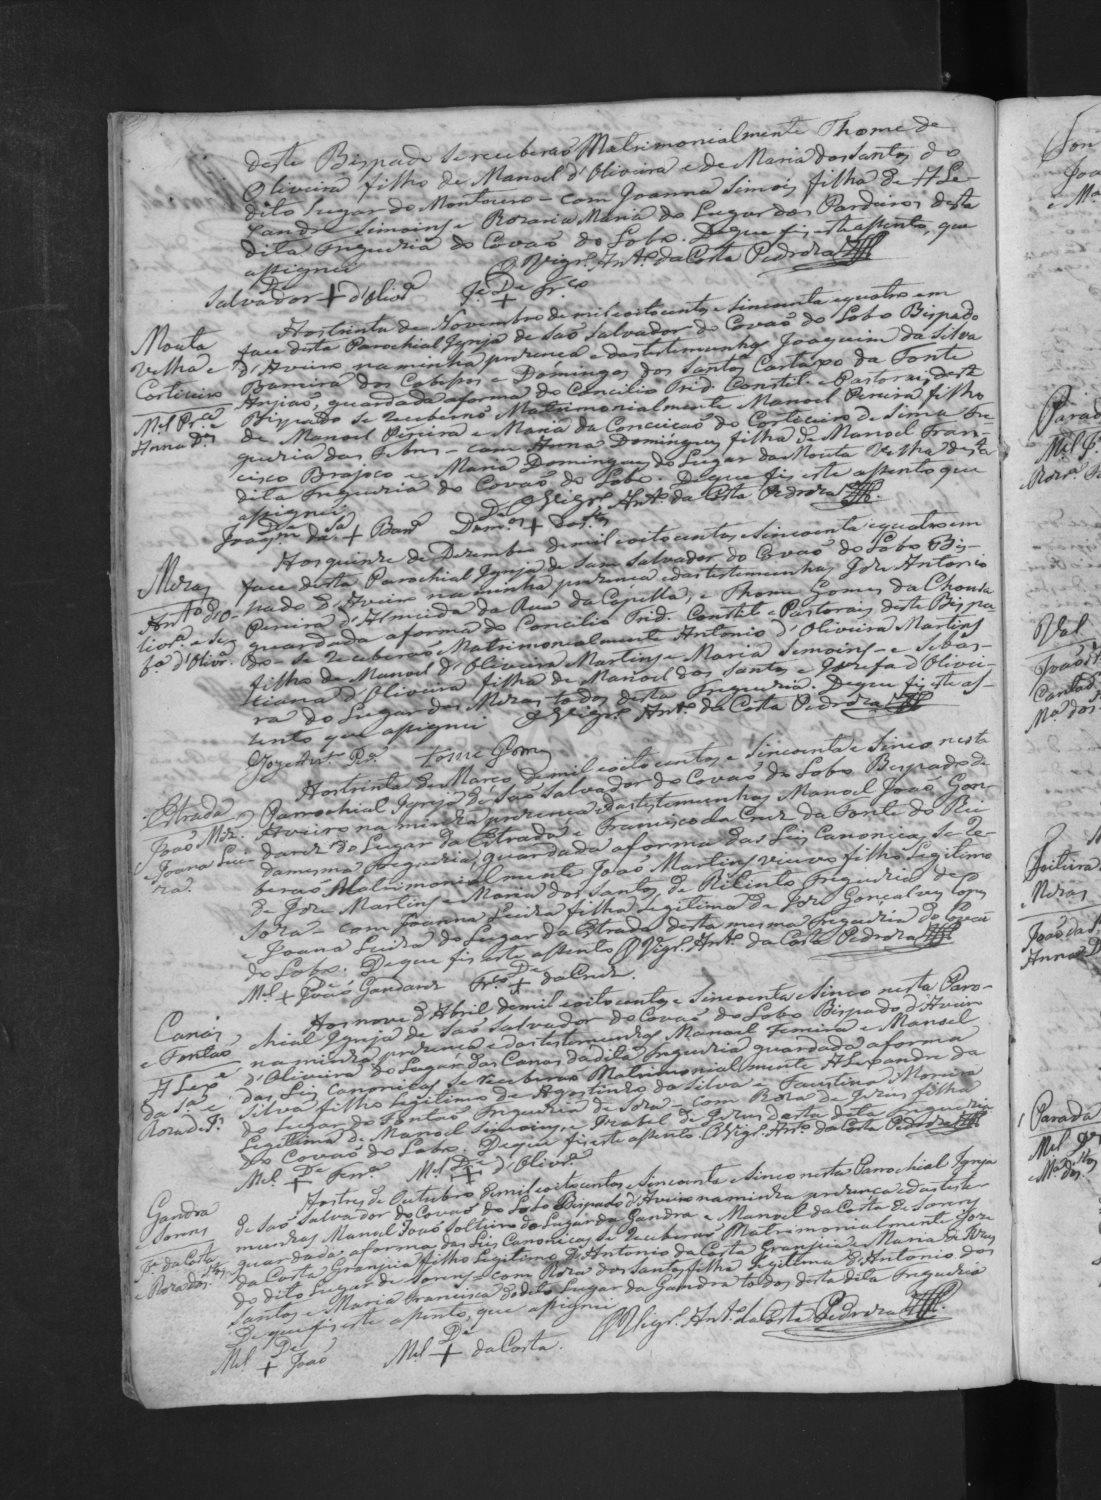 deste Bispado se receberaõ Matrimonialmente Thome de
Oliveira filho de Manoel d'Oliveira e de Maria dos Santos do
dito Lugar do Montouro - com Joanna Simois filha de Ale-
xandre Simoins e Rozaria Maria do Lugar dos Pardieiros desta
dita Freguezia do Covaõ do Lobo. De que fis este assento, que
assignei O Vigr.º Ant.º da Costa Pedroza
Salvador + d'Olivrª De + Fr.co
Mouta
Velha e
Corticeiro
Mel Prª e
Anna Dºs
Aos trinta de Novembro de mil oitocentos e sincoenta e quatro em
face desta Parochial Igreja de Saõ Salvador do Covaõ do Lobo Bispado
d'Aveiro na minha prezenca e das testemunhas Joaquim da Silva
Barreira dos Cabessos e Domingos dos Santos Cartaxo da Fonte
Anjiaõ, guardada a forma do Concilio Trid. Constit. e Pastorais deste
Bispado se receberaõ Matrimonialmente Manoel Pereira filho
de Manoel Pereira e Maria da Conceicaõ do Corticeiro de Sima Fre-
guezia das Febres - com Anna Domingues filha de Manoel Fran-
cisco Brajoco e Maria Domingues do Lugar da Mouta Velha desta
dita Freguezia do Covaõ do Lobo. De que fis este assento que
assignei O Vigr.º Ant.º da Costa Pedroza
Joaqm da Sª + Barrª Domos + Dos Stos
Mezas
Antº d'O-
livrª e Seb
tª d'Olivrª
Aos quinze de Dezembro de mil oitocentos e sincoenta e quatro em
face desta Parochial Igreja de Saõ Salvador do Covaõ do Lobo Bis-
pado d'Aveiro na minha prezenca e das testemunhas Joze Antonio
Pereira d'Almeida da Rua da Capella, e Thome Gomes da Chousa
guardada a forma do Concilio Trid. Constit. e Pastorais deste Bispa
do - se receberaõ Matrimonialmente Antonio d'Oliveira Martins
filho de Manoel d'Oliveira Martins e Maria Simoins - e Sebas-
tiana d'Oliveira filha de Manoel dos Santos e Jozefa d'Olivei-
ra do Lugar das Mezas todos desta Freguezia. De que fis este as-
sento que assignei O Vigr.º Ant.º da Costa Pedroza
Joze Antº Prª tome Gomes
Estrada
João Miz.
e Joana Lui-
za.
Aos trinta de Março de mil oitocentos e Sincoenta e Sinco nesta
Parrochial Igreja de Saõ Salvador do Covaõ do Lobo Bispado de
Aveiro na minha prezenca e das testemunhas Manoel Joaõ Gan-
darez do Lugar da Estrada e Francisco da Cruz da Fonte do Rei
da mesma Freguezia, guardada a forma das Leis Canonicas, se re-
beraõ Matrimonialmente Joaõ Martins viuvo filho Legitimo
de Joze Martins e Maria dos Santos de Rilinto Freguezia de
Soza - com Joanna Luiza filha Legitima de Joze Gonçalves Lopes
e Joana Luiza do Lugar da Estrada desta mesma Freguezia do Covaõ
do Lobo. De que fis este assento O Vigr.º Ant.º da Costa Pedroza
Mel + Joaõ Gandarez Frco + da Cruz.
Canas
e Fontaõ
Alexe
da Sª e
Roza de J.
Aos nove d'Abril de mil oitocentos e Sincoenta e Sinco nesta Paro-
chial Igreja de Saõ Salvador do Covaõ do Lobo Bispado d'Aveiro
na minha prezenca e das testemunhas Manoel Ferreira e Manoel
d'Oliveira do Lugar das Canas da dita Freguezia guardada a forma
das Leis Canonicas se receberaõ Matrimonialmente Alexandre da
Silva filho Legitimo de Agostinho da Silva e Faustina Moreira
do Lugar do Fontaõ Freguezia de Soza - com Roza de Jezus filha
Legitima de Manoel Simoins e Izabel de Jezus desta dita Freguezia
do Covaõ do Lobo. De que fis este assento O Vigr.º Ant.º da Costa Pedroza
Mel + Ferrª Mel + d'Olivrª
Gandra
e Sorens
Je da Costa
e Roza dos Stos
Aos tres de Outubro de mil oitocentos e Sincoenta e Sinco nesta Parrochial Igreja
de Saõ Salvador do Covaõ do Lobo Bispado d'Aveiro na minha prezenca e das teste-
munhas Manoel Joaõ Solteiro do Lugar da Gandra e Manoel da Costa de Sorens
guardada a forma das Leis Canonicas, se receberaõ Matrimonialmente Joze
da Costa Granjeia filho Legitimo d'Antonio da Costa Granjeia e Maria de
do dito Lugar de Sorens - com Roza dos Santos filha Legitima d'Antonio dos
Santos e Maria Francisca do dito Lugar da Gandra todos desta dita Freguezia
De que fis este assento, que assignei O Vigr.º Ant.º da Costa Pedroza
Mel + Joaõ Mel + da Costa.